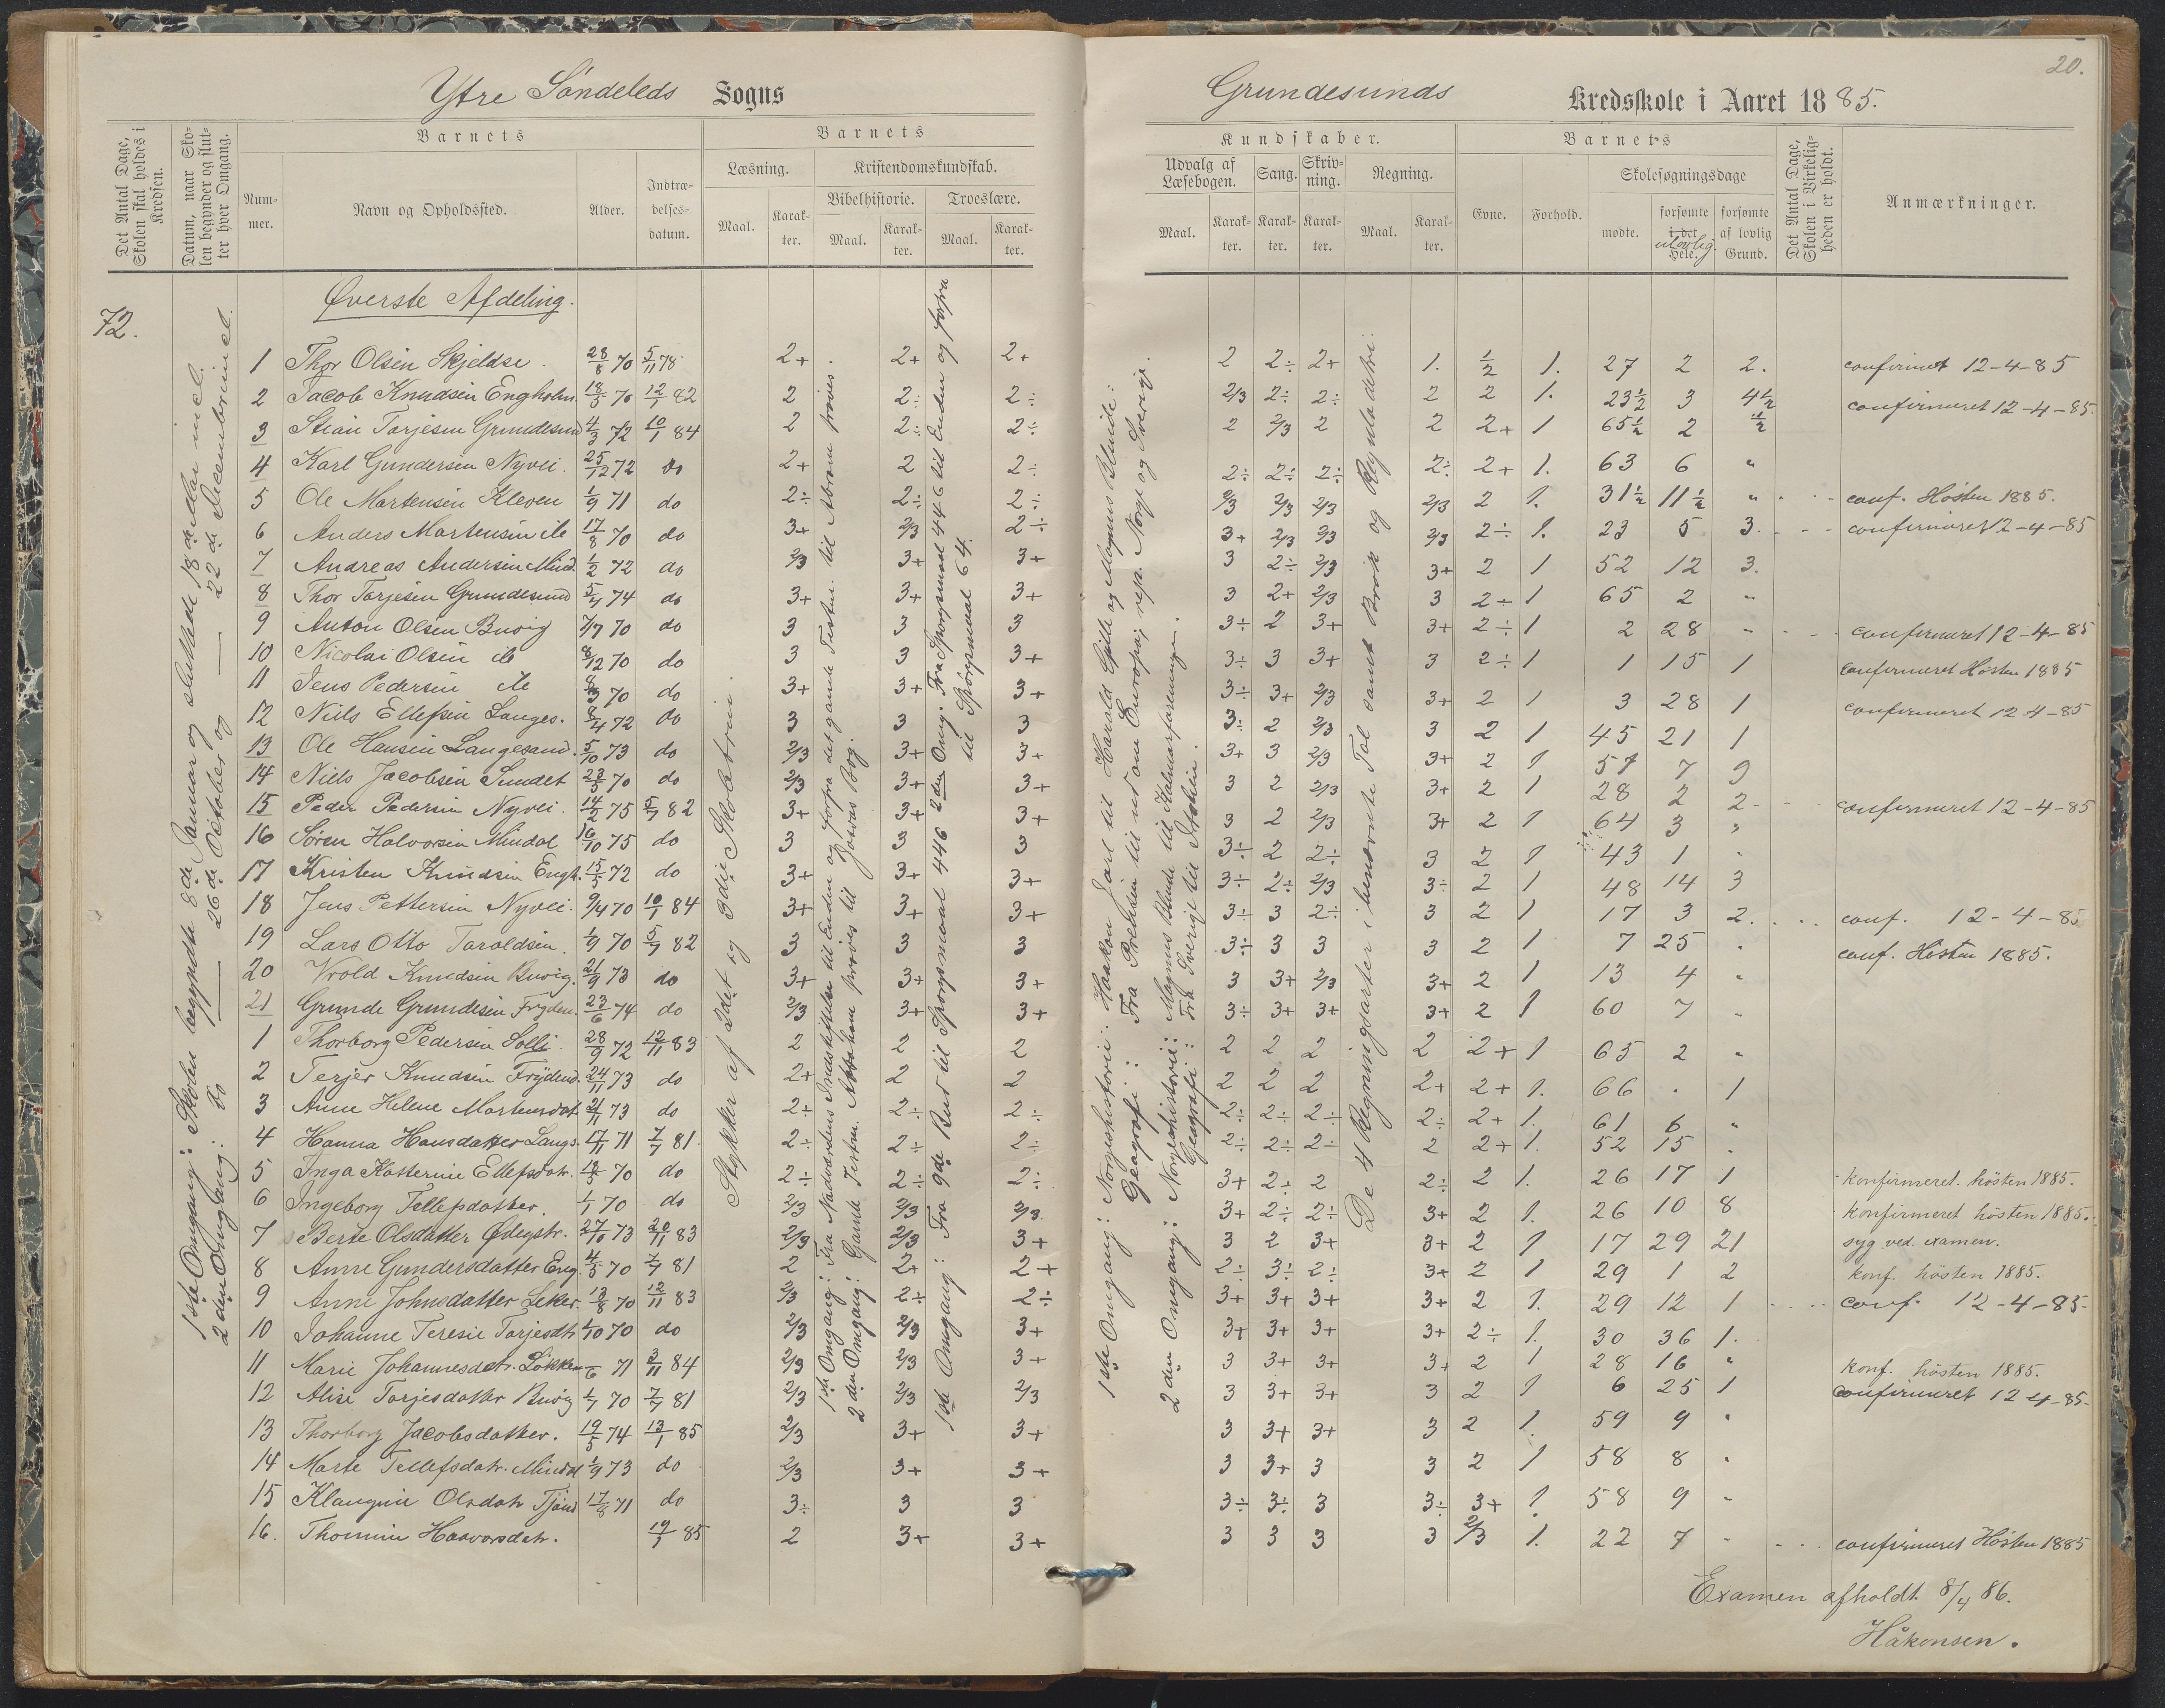 20.
Ytre Söndeleds Sogns
Grundesunds Kredsskole i Aaret 1885.
Det Antal Dage, Skolen skal holdes i Kredsen.
Datum, naar Skolen begynder og slutter hver Omgang.
Barnets
Nummer.
Navn og Opholdssted.
Alder.
Indtrædelsesdatum.
Barnets
Læsning.
Maal.
Karakter.
Kristendomskundskab.
Bibelhistorie.
Maal.
Karakter.
Troeslære.
Maal.
Karakter.
Kundskaber.
Udvalg af Læsebogen.
Maal.
Karakter.
Sang.
Karakter.
Skrivning.
Karakter.
Regning.
Maal.
Karakter.
Barnets
Evne.
Forhold.
Skolesøgningsdage
mødte.
forsømte i det Hele.
ulovlig
forsømte af lovlig Grund.
Det Antal Dage, Skolen i Virkeligheden er holdt.
Anmærkninger.
72.
Øverste Afdeling.
1ste Omgang: Skolen begyndte 8de Januar og sluttede 18de Mai incl.
2den Omgang: do 26de October og 22de Decembr incl.
Stykker af 2det og 3die Skoletrin.
1ste Omgang: Fra Nadverdens Indstiftelse til Enden og forfra det gamle Testm. til Abram prøves.
2den Omgang: Gamle Testm. Abraham prøves til Josvas Bog.
1ste Omgang: Fra 9de Bud til Spørgsmaal 446 2den Omg. Fra Spørgsmaal 446 til Enden og forfra til Spørgsmaal 64.
1ste Omgang: Norgeshistorie: Haakon Jarl til Harald Gille og Magnus Blinde:
Geografi: Fra Preussen til ud om Europa; rep. Norge og Sverige.
2den Omgang: Norgeshistorie: Magnus Blinde til Kalmarforeningen.
Geografi: Fra Sverige til Italien.
De 4 Regningsarter i benævnte Tal samt Brøk og Reguladetri.
1 Thor Olsen Skjeldse. 28/8 70 5/11 78 2+ 2+ 2+ 2 2÷ 2+ 1. 1/2 1. 27 2 2. confirmet 12-4-85
2 Jacob Knudsen Engholm. 18/5 70 12/1 82 2 2÷ 2÷ 2/3 2÷ 2÷ 2 2 1. 23½ 3 4½ confirmeret 12-4-85.
3 Stian Torjesen Grundesund 4/3 72 10/1 84 2 2÷ 2÷ 2 2/3 2 2 2+ 1 65½ 2 ½
4 Karl Gundersen Nyvei. 25/12 72 do 2+ 2 2÷ 2÷ 2÷ 2÷ 2÷ 2+ 1. 63 6 "
5 Ole Martensen Kleven 1/9 71 do 2÷ 2÷ 2÷ 2/3 2/3 2/3 2/3 2 1. 31½ 11½ " conf. Høsten 1885.
6 Anders Martensen ib 17/8 70 do 3+ 2/3 2÷ 3+ 2/3 2/3 2/3 2÷ 1. 23 5 3. confirmeret 12-4-85
7 Andreas Andersen Mind. 1/2 72 do 2/3 3+ 3+ 3 2÷ 2/3 3+ 2 1 52 12 3.
8 Thor Torjesen Grundesund 5/4 74 do 3+ 3+ 3+ 3 2+ 2/3 3 2÷ 1 65 2 "
9 Anton Olsen Buvig 7/7 70 do 3 3 3 3÷ 2 3+ 3+ 2÷ 1 2 28 " confirmeret 12-4-85
10 Nicolai Olsen ib 8/12 70 do 3 3 3+ 3÷ 3 3+ 3 2÷ 1 1 15 1 confirmeret Høsten 1885
11 Jens Pedersen ib 8/3 70 do 3+ 3+ 3+ 3÷ 3+ 2/3 3+ 2 1 3 28 1 confirmeret 12-4-85
12 Niels Ellefsen Langes. 8/4 72 do 3 3 3 3÷ 2 2/3 3 2 1 45 21 1
13 Ole Hansen Langesand. 5/10 73 do 2/3 3+ 3+ 3+ 3 2/3 3+ 2 1 57 7 9
14 Niels Jacobsen Sundet 23/5 70 do 2/3 3+ 3+ 3 2 2/3 3+ 2 1 28 2 2 confirmeret 12-4-85
15 Peder Pedersen Nyvei. 14/2 75 5/7 82 3+ 3+ 3+ 3 2 2/3 3+ 2 1 64 3 "
16 Søren Halvorsen Mindal 16/10 75 do 3 3 3 3÷ 2 2÷ 3 2 1 43 1 "
17 Kristen Knudsen Engh. 15/5 72 do 3+ 3+ 3+ 3÷ 2÷ 2/3 3÷ 2 1 48 14 3
18 Jens Pettersen Nyvei. 9/4 70 10/1 84 3+ 3+ 3+ 3÷ 3 2÷ 3 2 1 17 3 2. conf. 12-4-85
19 Lars Otto Taraldsen. 1/9 70 5/7 82 3 3 3 3÷ 3 3 3 2 1 7 25 " conf. Høsten 1885.
20 Vrold Knudsen Buvig. 21/9 73 do 3+ 3+ 3+ 3 3+ 2/3 3+ 2 1 13 4 "
21 Grunde Grundesen Fryden. 23/6 74 do 2/3 3+ 3+ 3÷ 3+ 3+ 3+ 2 1 60 7 "
1 Thorborg Pedersen Solli. 28/9 72 12/11 83 2 2 2 2 2 2 2 2+ 1 65 2 "
2 Terjer Knudsen Frydend. 24/11 73 do 2+ 2 2 2 2 2 2+ 2+ 1. 66 . 1
3 Anne Helene Martensdat. 21/11 73 do 2÷ 2÷ 2÷ 2÷ 2÷ 2÷ 2÷ 2+ 1. 61 6 "
4 Hanna Hansdatter Langs. 17/11 71 7/7 81. 2÷ 2÷ 2÷ 2÷ 2÷ 2÷ 2 2+ 1. 52 15 .
5 Inga Katterine Ellefsdatr. 13/5 70 do 2÷ 2÷ 2÷ 3+ 2÷ 2 2÷ 2 1. 26 17 1 konfirmeret. hösten 1885.
6 Ingeborg Tellefsdatter. 1/1 70 do 2/3 2/3 2/3 3+ 2÷ 2÷ 3+ 2 1. 26 10 8 konfirmeret hösten 1885.
7 Berte Olsdatter Ødegstr. 27/10 73 20/11 83 2/3 2/3 3+ 3 2 3+ 3+ 2 1 17 29 21 syg ved. examen.
8 Anne Gundersdatter Eng. 4/5 70 7/7 81 2 2+ 2+ 2÷ 3÷ 2÷ 3+ 2 1 29 1 2 konf. hösten 1885.
9 Anne Johnsdatter Leker. 13/8 70 12/11 83 2/3 2÷ 2÷ 3+ 3+ 3+ 3+ 2 1. 29 12 1 conf. 12-4-85.
10 Johanne Teresie Torjesdtr. 1/10 70 do 2/3 2/3 3+ 3+ 3+ 3+ 3+ 2÷ 1. 30 36 1.
11 Marie Johannesdatr. Løkken /6 71 3/11 84 2/3 2/3 3+ 3 3+ 3+ 3+ 2 1 28 16 " konf. hösten 1885.
12 Alise Torjesdatter Buvig 1/7 70 7/7 81 2/3 2/3 2/3 3 3+ 3+ 3 2 1 6 25 1 confirmeret 12 4-85.
13 Thorborg Jacobsdatter. 19/5 74 13/1 85 2/3 3+ 3+ 3 3+ 3+ 3 2 1. 59 9 "
14 Marte Tellefsdatr. Mindal 1/9 73 do 2/3 3+ 3+ 3 3+ 3 3 2 1 58 8 "
15 Klaugine Olsdatr Tjønd 17/8 71 do 3÷ 3 3 3÷ 3÷ 3 3÷ 3+ 1. 58 9 "
16. Thomine Haavorsdatr. 19/1 85 2 3+ 3+ 3 3 3 3 2/3 1. 22 7 " confirmeret Høsten 1885
Examen afholdt 8/4 86.
Håkonsen.